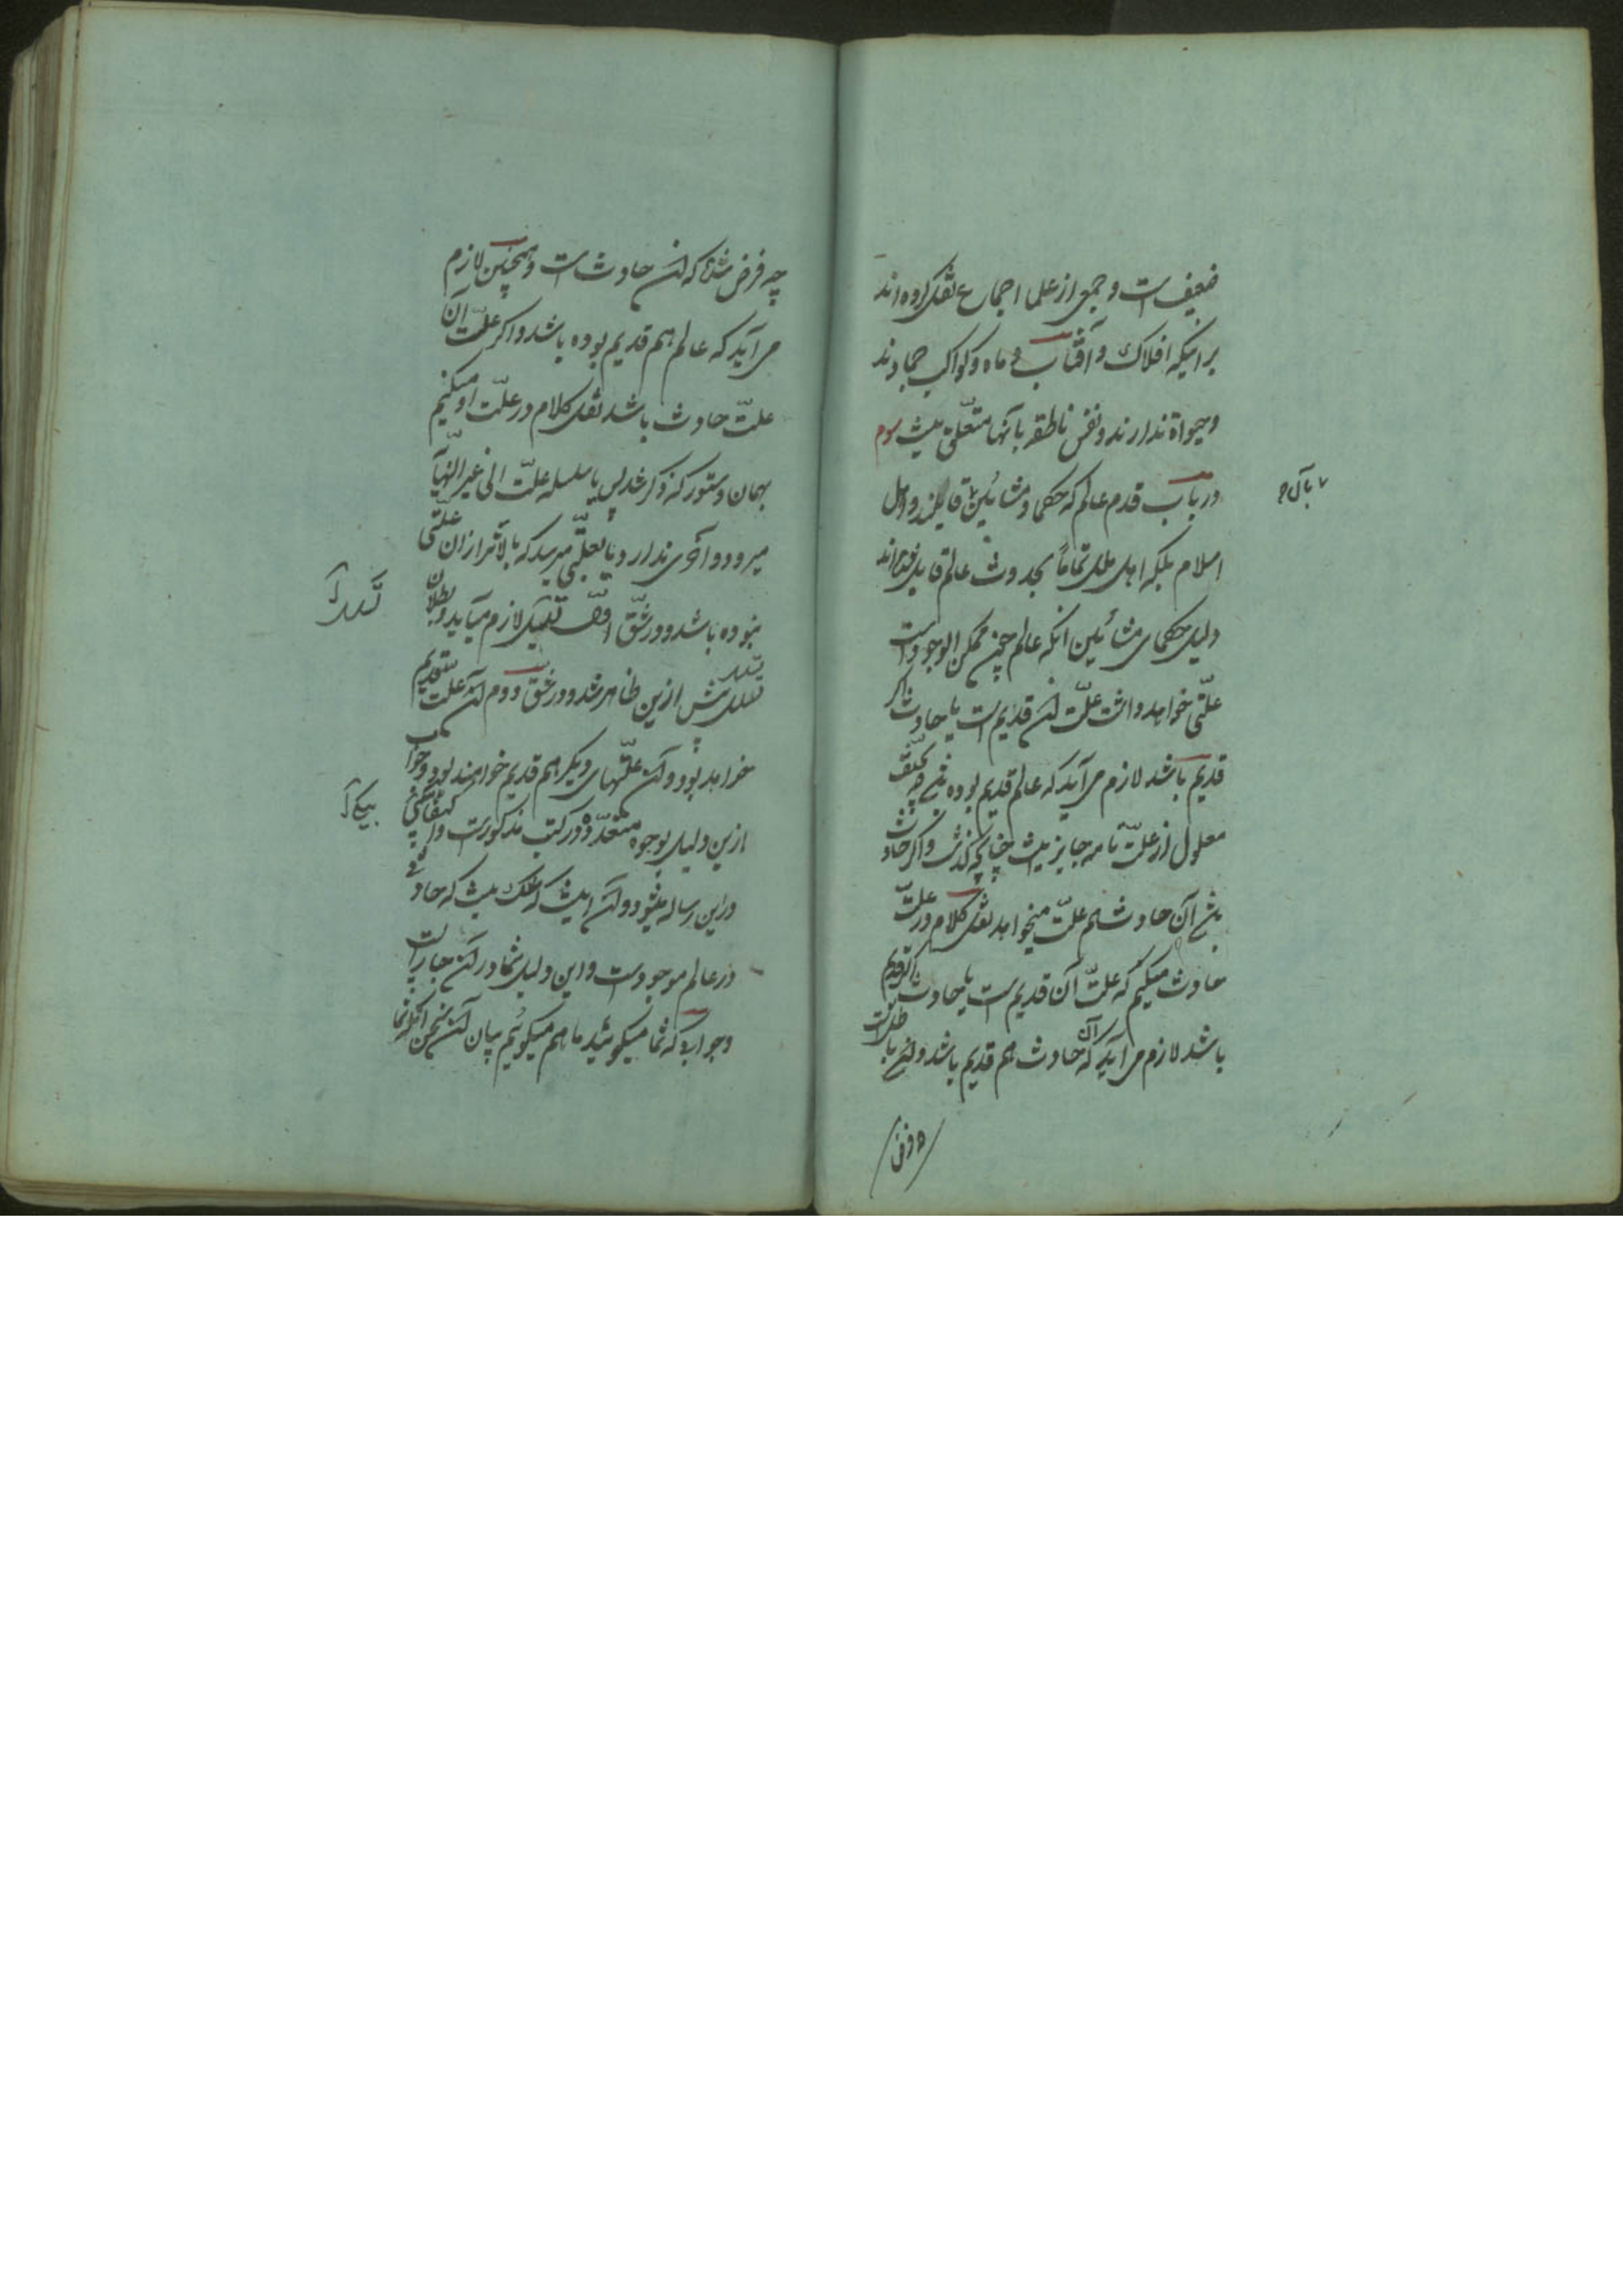 ضعیف است و جمعی از علما اجماع نقل کرده اند
بر اینکه افلاک و آفتاب و ماه و کواکب جمادند
و حیواة ندارند و نفس ناطقه بآنها متعلّق نیست سوم
در باب قدم عالم که حکما و مشائین قایلند و اهل
اسلام بلکه اهل ملل تماماً بحدوث عالم قایل بوده اند
دلیل حکمای مشائین انکه عالم چون ممکن الوجود است
علّتی خواهد داشت علّت آن قدیم است یا حادث اگر
قدیم باشد لازم می آید که عالم قدیم بوده باشد چه تخلّف
معلول از علّت تامه جایز نیست چنانچه گذشت و اگر حادث
باشد آن حادث هم علّت میخواهد نقل کلام در علّت
حادث میکنیم که علّت آن قدیم است یا حادث اگر قدیم
باشد لازم می آید که آن حادث هم قدیم باشد و این باطل است
چه فرض شده که آن حادث است و همچنین لازم
می آید که عالم هم قدیم بوده باشد و اکر علّت آن
علّت حادث باشد نقل کلام در علّت او میکنیم
بهمان دستور که ذکر شد پس یا سلسله علّت الی غیر النّهایة
میرود و آخری ندارد و یا بعلّتی میرسد که بالاتر از آن علّتی
نبوده باشد و در شقّ اوّل تسلسل لازم میآید و بطلان
تسلسل پیش ازین ظاهر شد و در شقّ دوم آن علّت قدیم
خواهد بود و آن علّتهای دیکر هم قدیم خواهند بود و جواب
ازین دلیل بوجوه متعدّده در کتب مذکور است و اکتفا بیکی
در این رساله میشود و آن اینست که شک نیست که حادثی
در عالم موجود است و این دلیل شما در آن جاریست
و جوابی که شما میکوئید ما هم میکوئیم بیان آن سخن آنکه شما